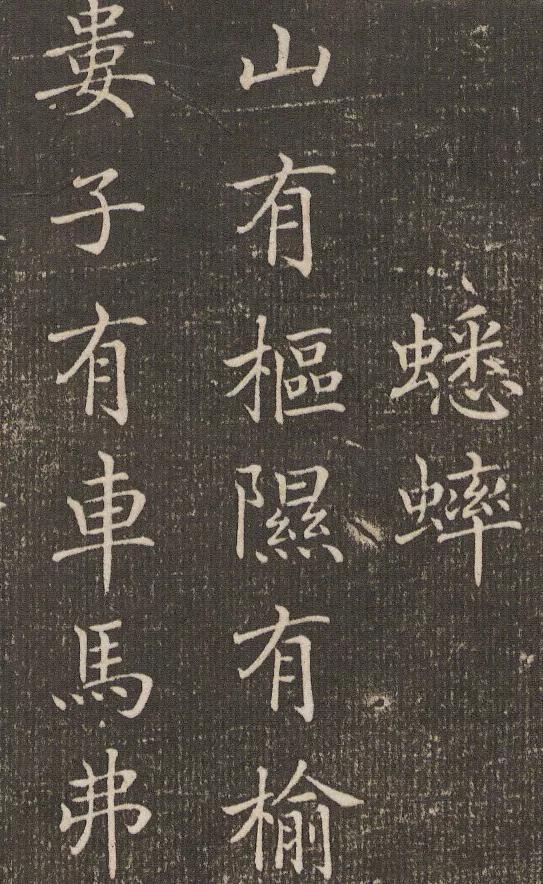 蟋蟀
山有樞隰有榆
婁子有車馬弗